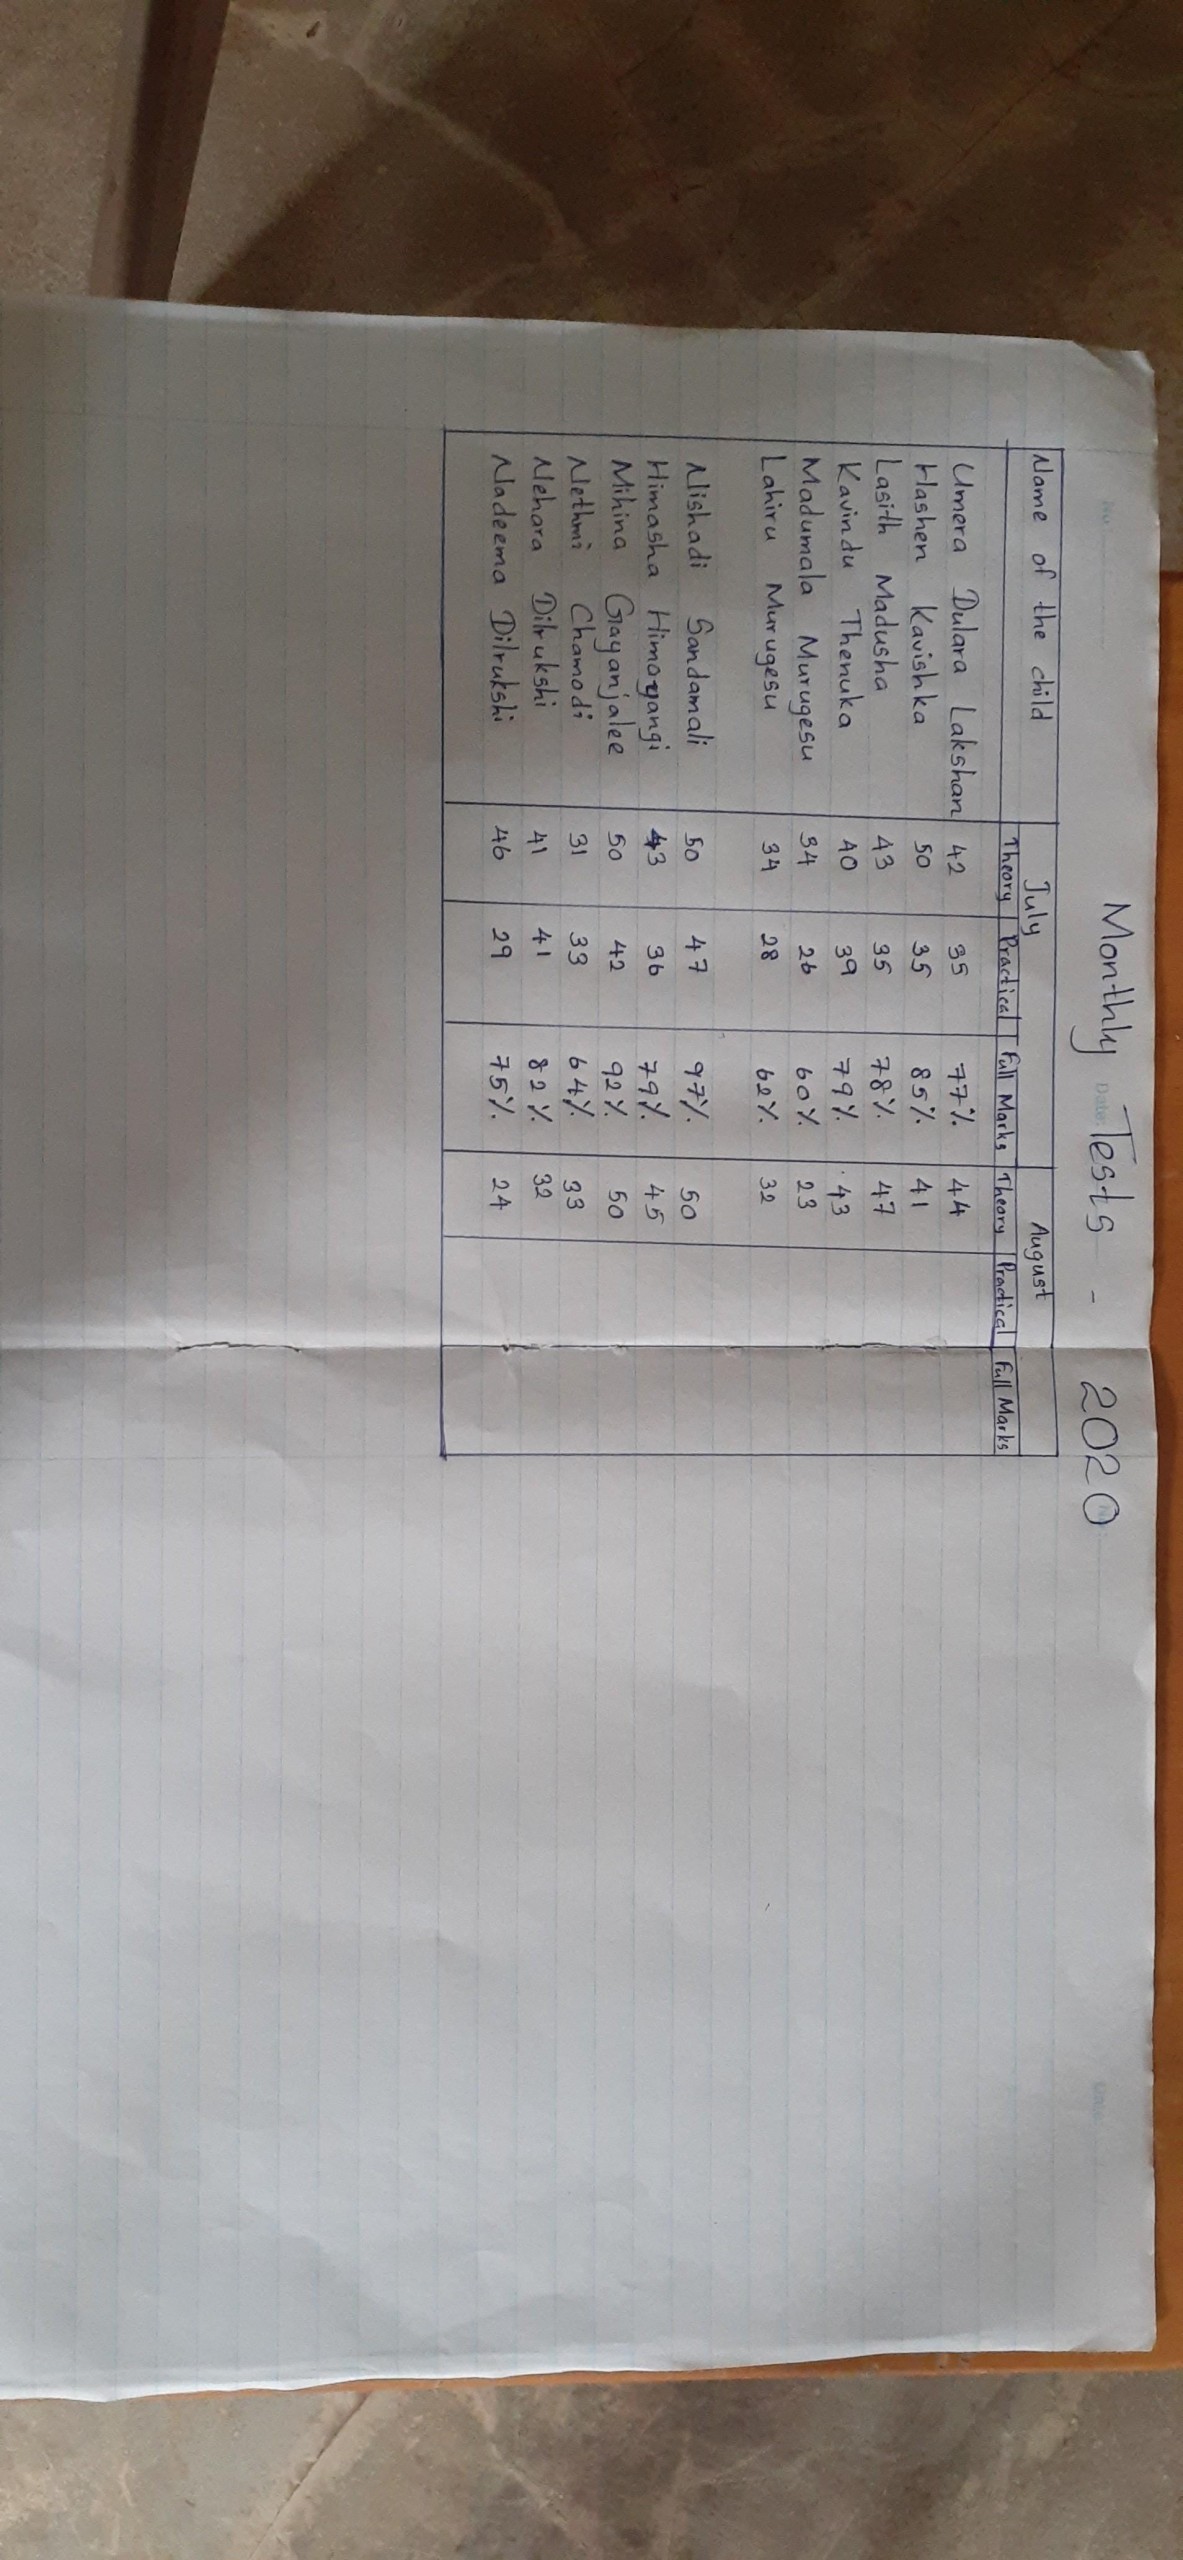 Monthly Tests - 2020
No:
Date:
Name of the child July August
Theory Practical Full Marks Theory Practical Full Marks
Umera Dulara Lakshan 42 35 77% 44
Hashen Kavishka 50 35 85% 41
Lasith Madusha 43 35 78% 47
Kavindu Thenuka 40 39 79% 43
Madumala Murugesu 34 26 60% 23
Lahiru Murugesu 34 28 62% 32
Nishadi Sandamali 50 47 97% 50
Himasha Himoyangi 43 36 79% 45
Mihina Gayanjalee 50 42 92% 50
Nethmi Chamodi 31 33 64% 33
Nehara Dilrukshi 41 41 82% 32
Nadeema Dilrukshi 46 29 75% 24